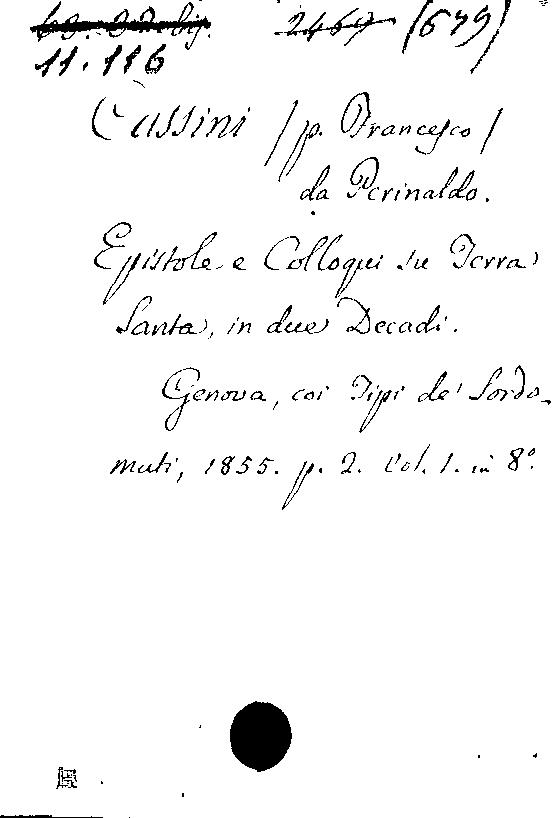 2467 (679)
11.116
Cassini / p. Francesco /
da Perinaldo.
Epistole e Colloqui su Terra
Santa, in due Decadi.
Genova, coi Tipi de' Sordo-
muti, 1855. p. 2. Vol. 1. in 8°.